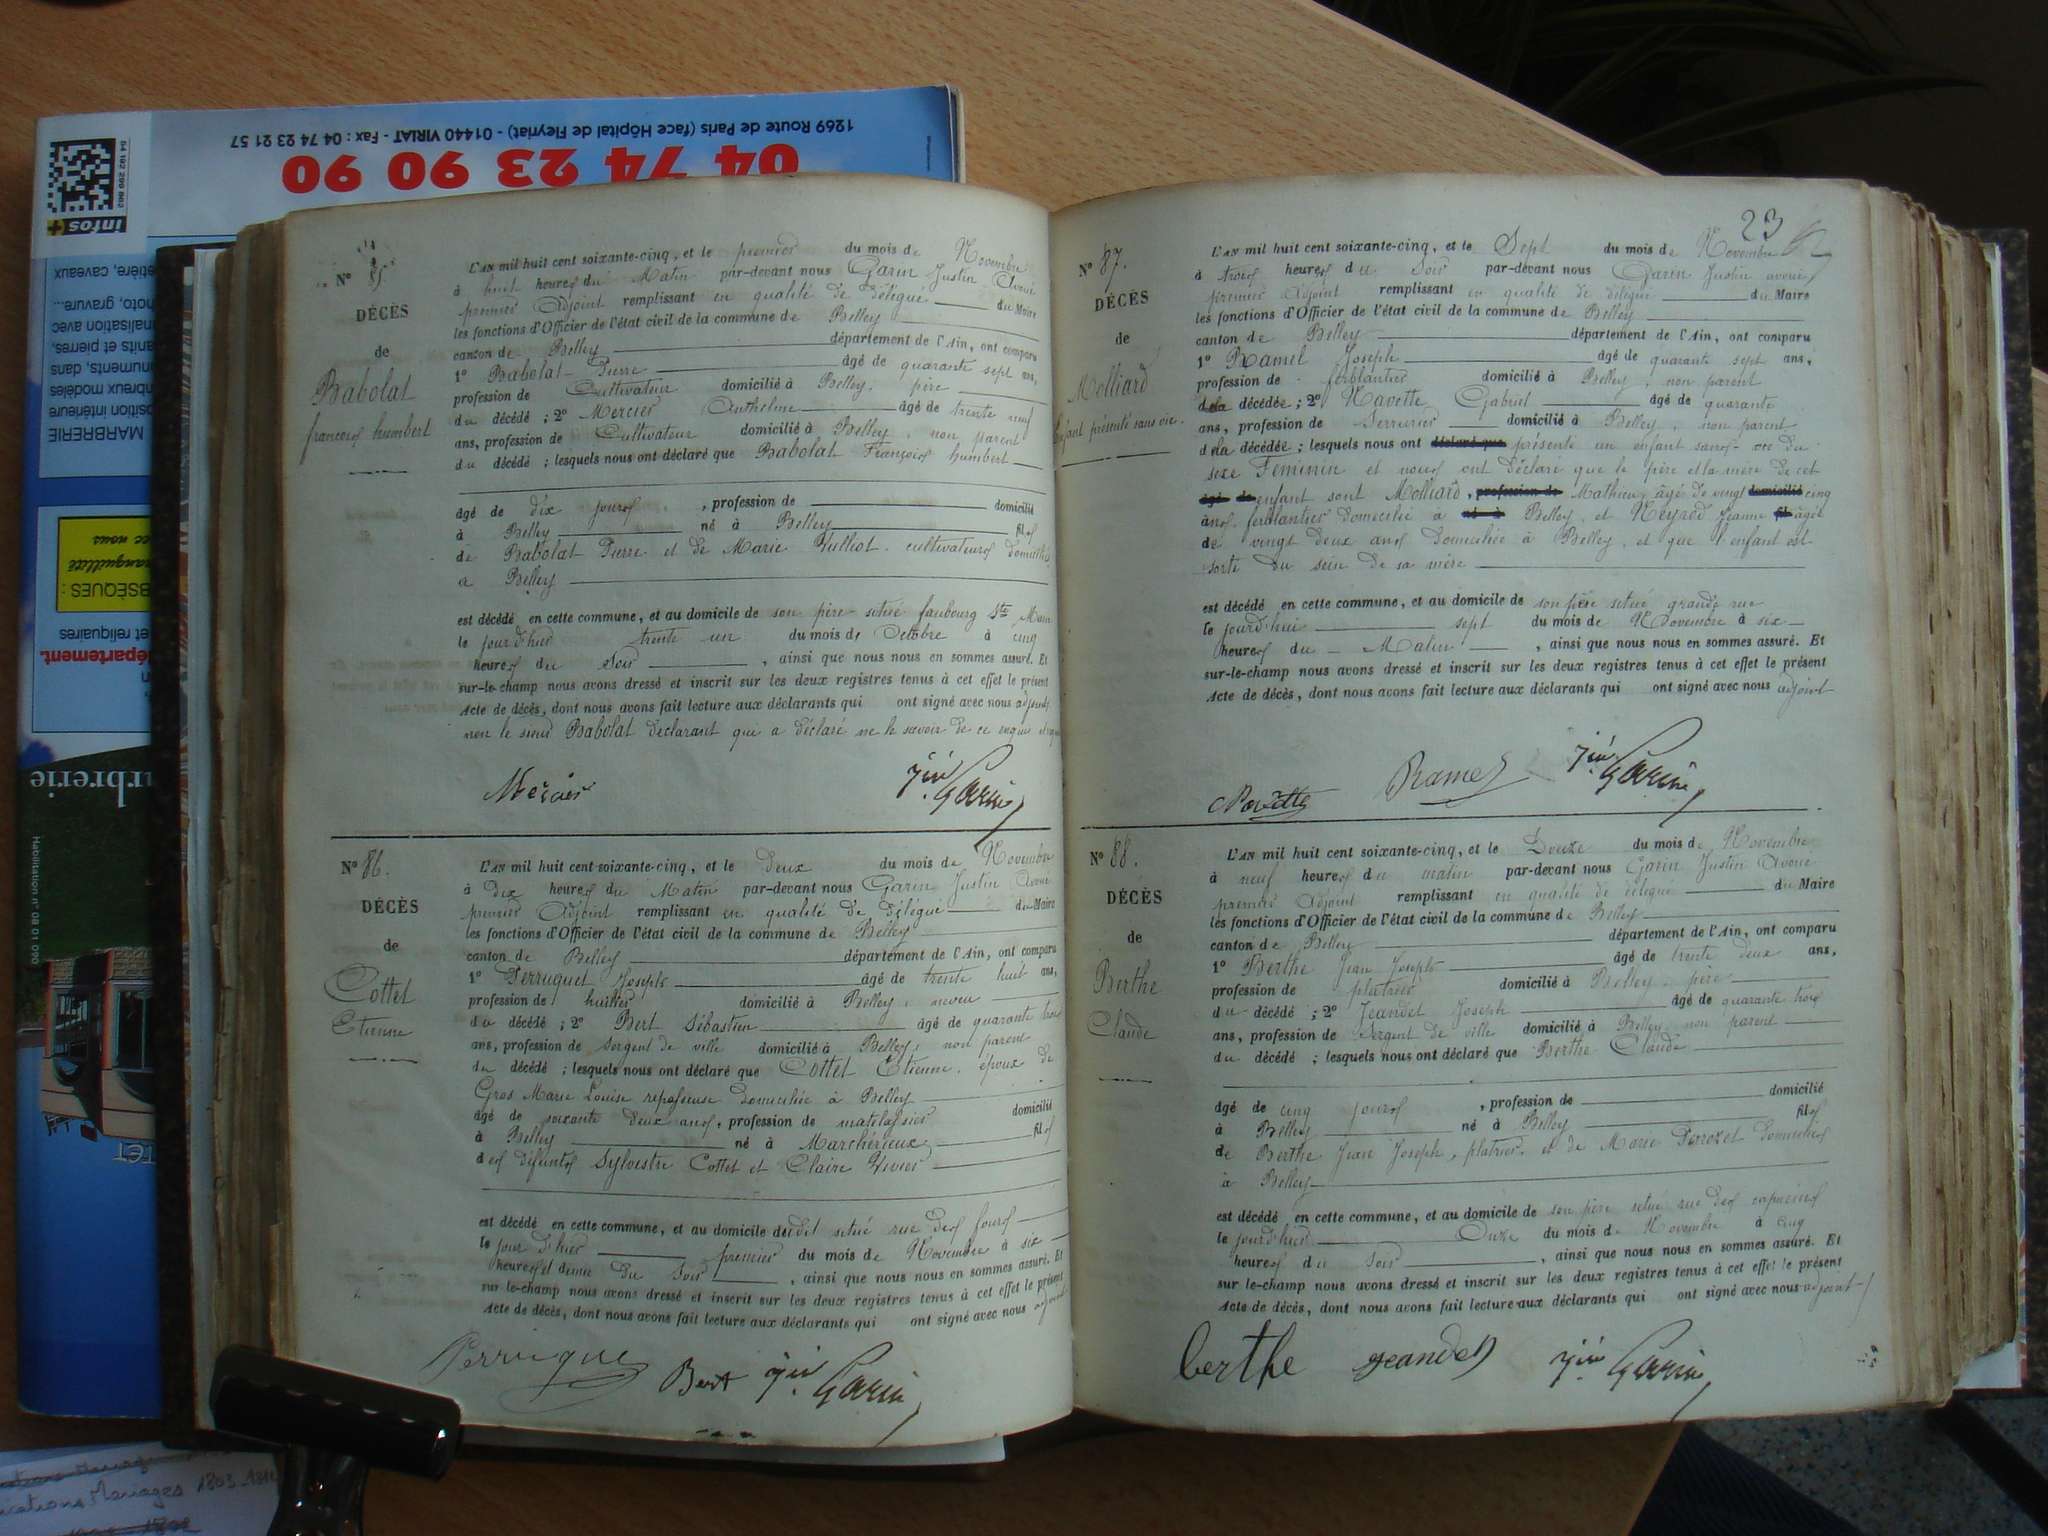 1269 Route de Paris (face Hôpital de Fleyriat) - 01440 VIRIAT - Fax : 04 74 23 21 57
04 74 23 90 90
infos+
54 192 299 802
caveaux
photo, gravure...
avec
et pierres,
dans
modèles
intérieure
MARBRERIE
OBSÈQUES :
tranquillité
et reliquaires
département.
Habilitation n° 08 01 090
Nº 85.
DÉCÈS
de
Babolat
françois humbert
L'AN mil huit cent soixante-cinq, et le premier du mois de Novembre
à huit heures du Matin par-devant nous Garin Justin Avoué
premier Adjoint remplissant en qualité de délégué du Maire
les fonctions d'Officier de l'état civil de la commune de Belley
canton de Belley département de l'Ain, ont comparu
1º Babolat Pierre âgé de quarante sept ans,
profession de Cultivateur domicilié à Belley, père
du décédé ; 2º Mercier Anthelme âgé de trente neuf
ans, profession de Cultivateur domicilié à Belley, non parent
du décédé ; lesquels nous ont déclaré que Babolat François humbert
âgé de dix jours, profession de domicilié
à Belley né à Belley fils
de Babolat Pierre et de Marie Vulliot cultivateurs domiciliés
à Belley
est décédé en cette commune, et au domicile de son père situé faubourg St Martin
le jour d'hier trente un du mois de Octobre à cinq
heures du Soir, ainsi que nous nous en sommes assuré. Et
sur-le-champ nous avons dressé et inscrit sur les deux registres tenus à cet effet le présent
Acte de décès, dont nous avons fait lecture aux déclarants qui ont signé avec nous adjoint,
non le sieur Babolat déclarant qui a déclaré ne le savoir de ce enquis et requis
Mercier Jin Garin
Nº 86.
DÉCÈS
de
Cottet
Etienne
L'AN mil huit cent soixante-cinq, et le deux du mois de Novembre
à dix heures du Matin par-devant nous Garin Justin Avoué
premier Adjoint remplissant en qualité de délégué du Maire
les fonctions d'Officier de l'état civil de la commune de Belley
canton de Belley département de l'Ain, ont comparu
1º Perruquet Joseph âgé de trente huit ans,
profession de huilier domicilié à Belley, neveu
du décédé ; 2º Bert Sébastien âgé de quarante trois
ans, profession de Sergent de ville domicilié à Belley, non parent
du décédé ; lesquels nous ont déclaré que Cottet Etienne, époux de
Gros Marie Louise repasseuse domiciliée à Belley
âgé de soixante deux ans, profession de matelassier domicilié
à Belley né à Marchérieux fils
des défunts Sylvestre Cottet et Claire Vivier
est décédé en cette commune, et au domicile dudit situé rue des fours
le jour d'hier premier du mois de Novembre à six
heures et demie du Soir, ainsi que nous nous en sommes assuré. Et
sur-le-champ nous avons dressé et inscrit sur les deux registres tenus à cet effet le présent
Acte de décès, dont nous avons fait lecture aux déclarants qui ont signé avec nous adjoint
Perruque Bert Jin Garin
23
Nº 87.
DÉCÈS
de
Molliard
Enfant présenté sans vie.
L'AN mil huit cent soixante-cinq, et le Sept du mois de Novembre
à trois heures du Soir par-devant nous Garin Justin avoué
premier Adjoint remplissant en qualité de délégué du Maire
les fonctions d'Officier de l'état civil de la commune de Belley
canton de Belley département de l'Ain, ont comparu
1º Ramel Joseph âgé de quarante sept ans,
profession de ferblantier domicilié à Belley, non parent
dela décédée ; 2º Navette Gabriel âgé de quarante
ans, profession de Serrurier domicilié à Belley, non parent
dela décédée ; lesquels nous ont déclaré que présenté un enfant sans vie du
sexe Féminin et nous ont déclaré que le père et la mère de cet
âgé de enfant sont Molliard, profession de Mathieu, âgé de vingt domicilié cinq
ans, ferblantier domicilié à né à Belley, et Neyrod Jeanne fil âgée
de vingt deux ans domiciliée à Belley, et que l'enfant est
sorte du sein de sa mère
est décédé en cette commune, et au domicile de son père situé grande rue
le jourd'hui sept du mois de Novembre à six
heures du Matin, ainsi que nous nous en sommes assuré. Et
sur-le-champ nous avons dressé et inscrit sur les deux registres tenus à cet effet le présent
Acte de décès, dont nous avons fait lecture aux déclarants qui ont signé avec nous adjoint
Navette Ramel Jin Garin
Nº 88.
DÉCÈS
de
Berthe
Claude
L'AN mil huit cent soixante-cinq, et le Douze du mois de Novembre
à neuf heures du matin par-devant nous Garin Justin Avoué
premier Adjoint remplissant en qualité de délégué du Maire
les fonctions d'Officier de l'état civil de la commune de Belley
canton de Belley département de l'Ain, ont comparu
1º Berthe Jean Joseph âgé de trente deux ans,
profession de platrier domicilié à Belley, père
du décédé ; 2º Jeandet Joseph âgé de quarante trois
ans, profession de Sergent de ville domicilié à Belley, non parent
du décédé ; lesquels nous ont déclaré que Berthe Claude
âgé de cinq jours, profession de domicilié
à Belley né à Belley fils
de Berthe Jean Joseph, platrier, et de Marie Perrozet domiciliés
à Belley
est décédé en cette commune, et au domicile de son père situé rue des capucins
le jourd'hier Onze du mois de Novembre à cinq
heures du Soir, ainsi que nous nous en sommes assuré. Et
sur le-champ nous avons dressé et inscrit sur les deux registres tenus à cet effet le présent
Acte de décès, dont nous avons fait lecture aux déclarants qui ont signé avec nous adjoint
berthe jeandet Jin Garin
Mariages 1803